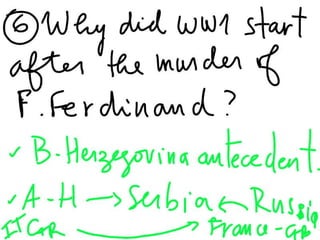 ⑥ Why did WW1 start
after the murder of
F. Ferdinand?
✓ B-Herzegovina antecedent.
✓ A-H → Serbia ← Russia
IT GR → France-GB